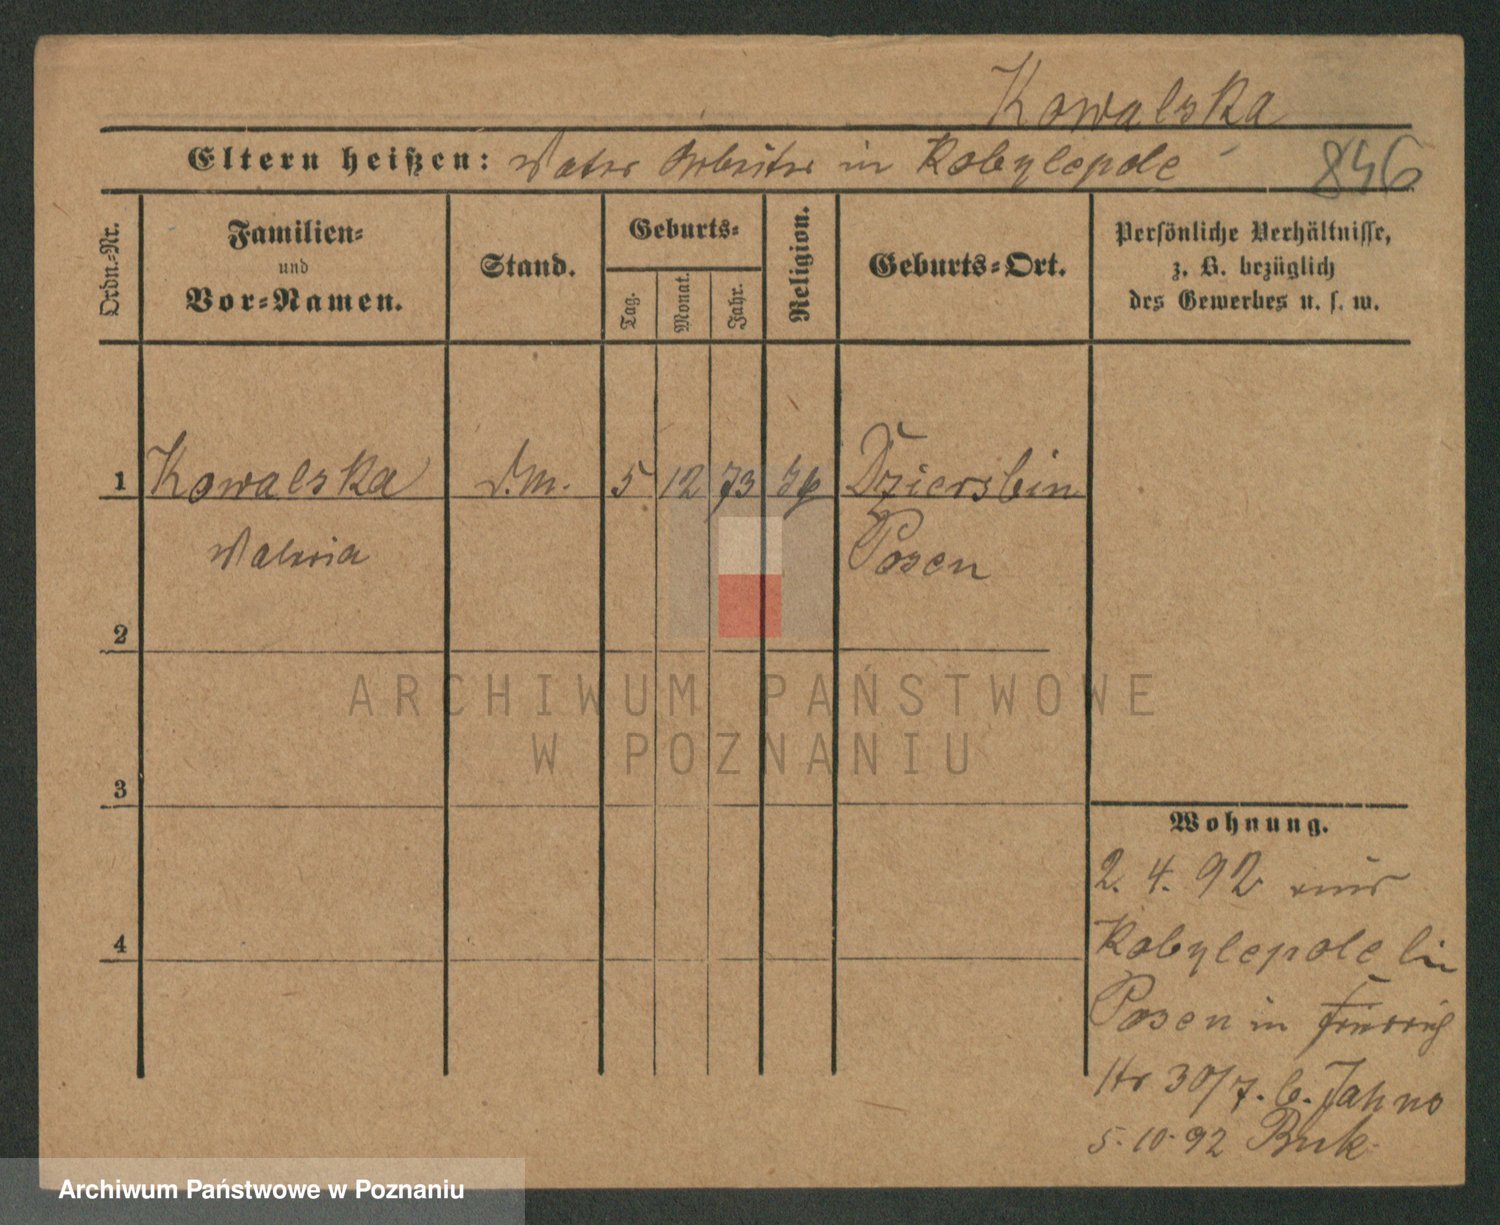 Kowalska
Eltern heißen: Vater Arbeiter in Kobylepole
846
Ordn.-Nr.
Familien-
und
Vor-Namen.
Stand.
Geburts-
Tag.
Monat.
Jahr.
Religion.
Geburts-Ort.
Persönliche Verhältnisse,
z. B. bezüglich
des Gewerbes u. s. w.
1 Kowalska d.m. 5 12 73 Dziersbin
Valeria Posen
2
ARCHIWUM PAŃSTWOWE
W POZNANIU
3
Wohnung.
2. 4. 92 aus
Kobylepole bei
4
Posen in
Str 30/7. b. Jahns
5. 10. 92 Buk
Archiwum Państwowe w Poznaniu